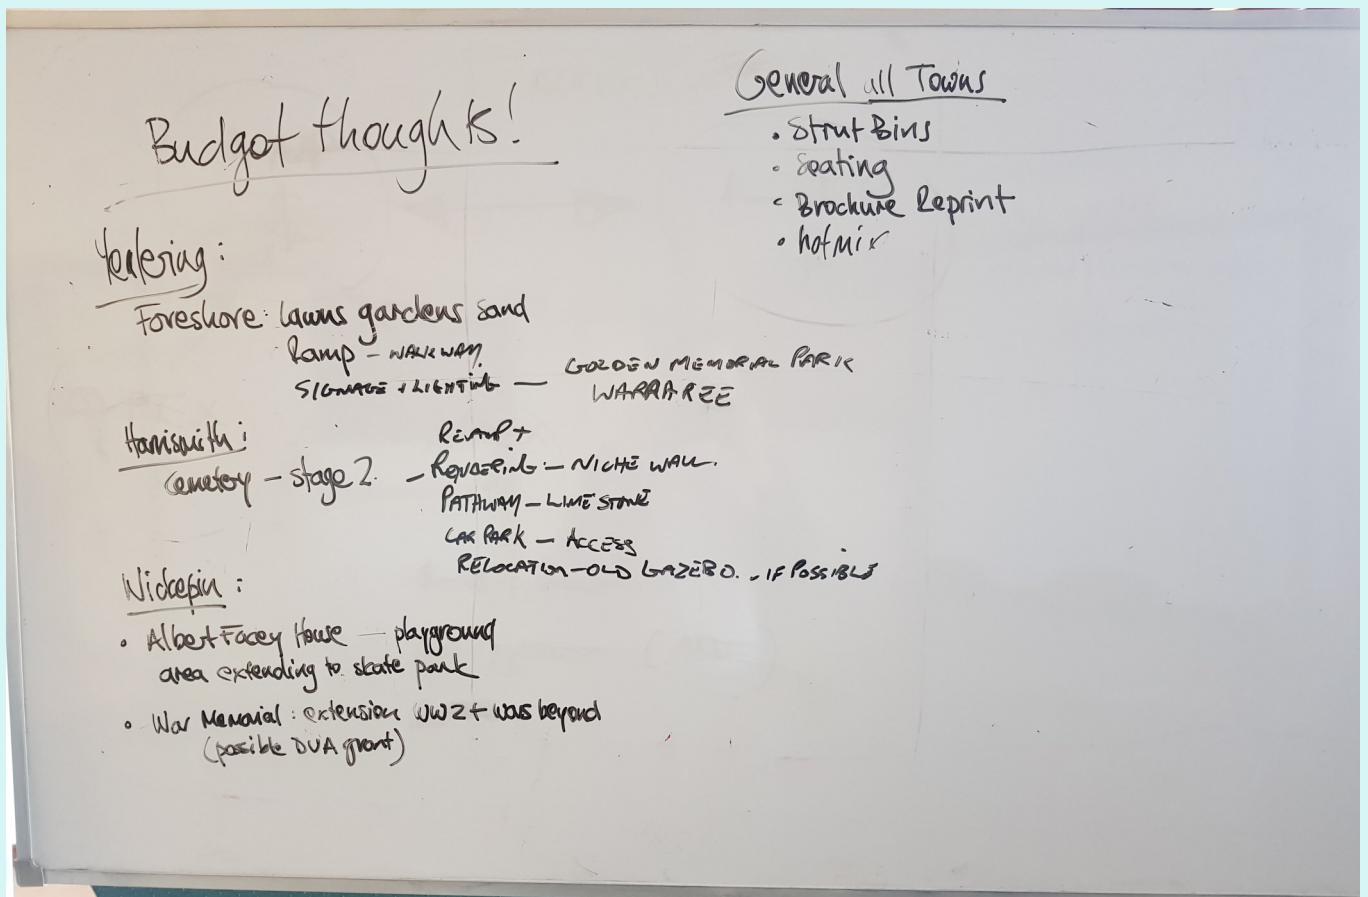 Budget thoughts!
Yealering:
Foreshore: lawns gardens sand
Ramp - WALKWAY.
SIGNAGE + LIGHTING — GOLDEN MEMORIAL PARK
WARRAREE
Harrismith:
Cemetery - stage 2. - REVAMP +
RENDERING - NICHE WALL.
PATHWAY - LIMESTONE
CAR PARK - ACCESS
RELOCATION - OLD GAZEBO. - IF POSSIBLE
Wickepin:
• Albert Facey House — playground
area extending to skate park
• War Memorial: extension WW2 + wars beyond
(possible DVA grant)
General all Towns
• Strut Bins
• Seating
• Brochure Reprint
• hotmix